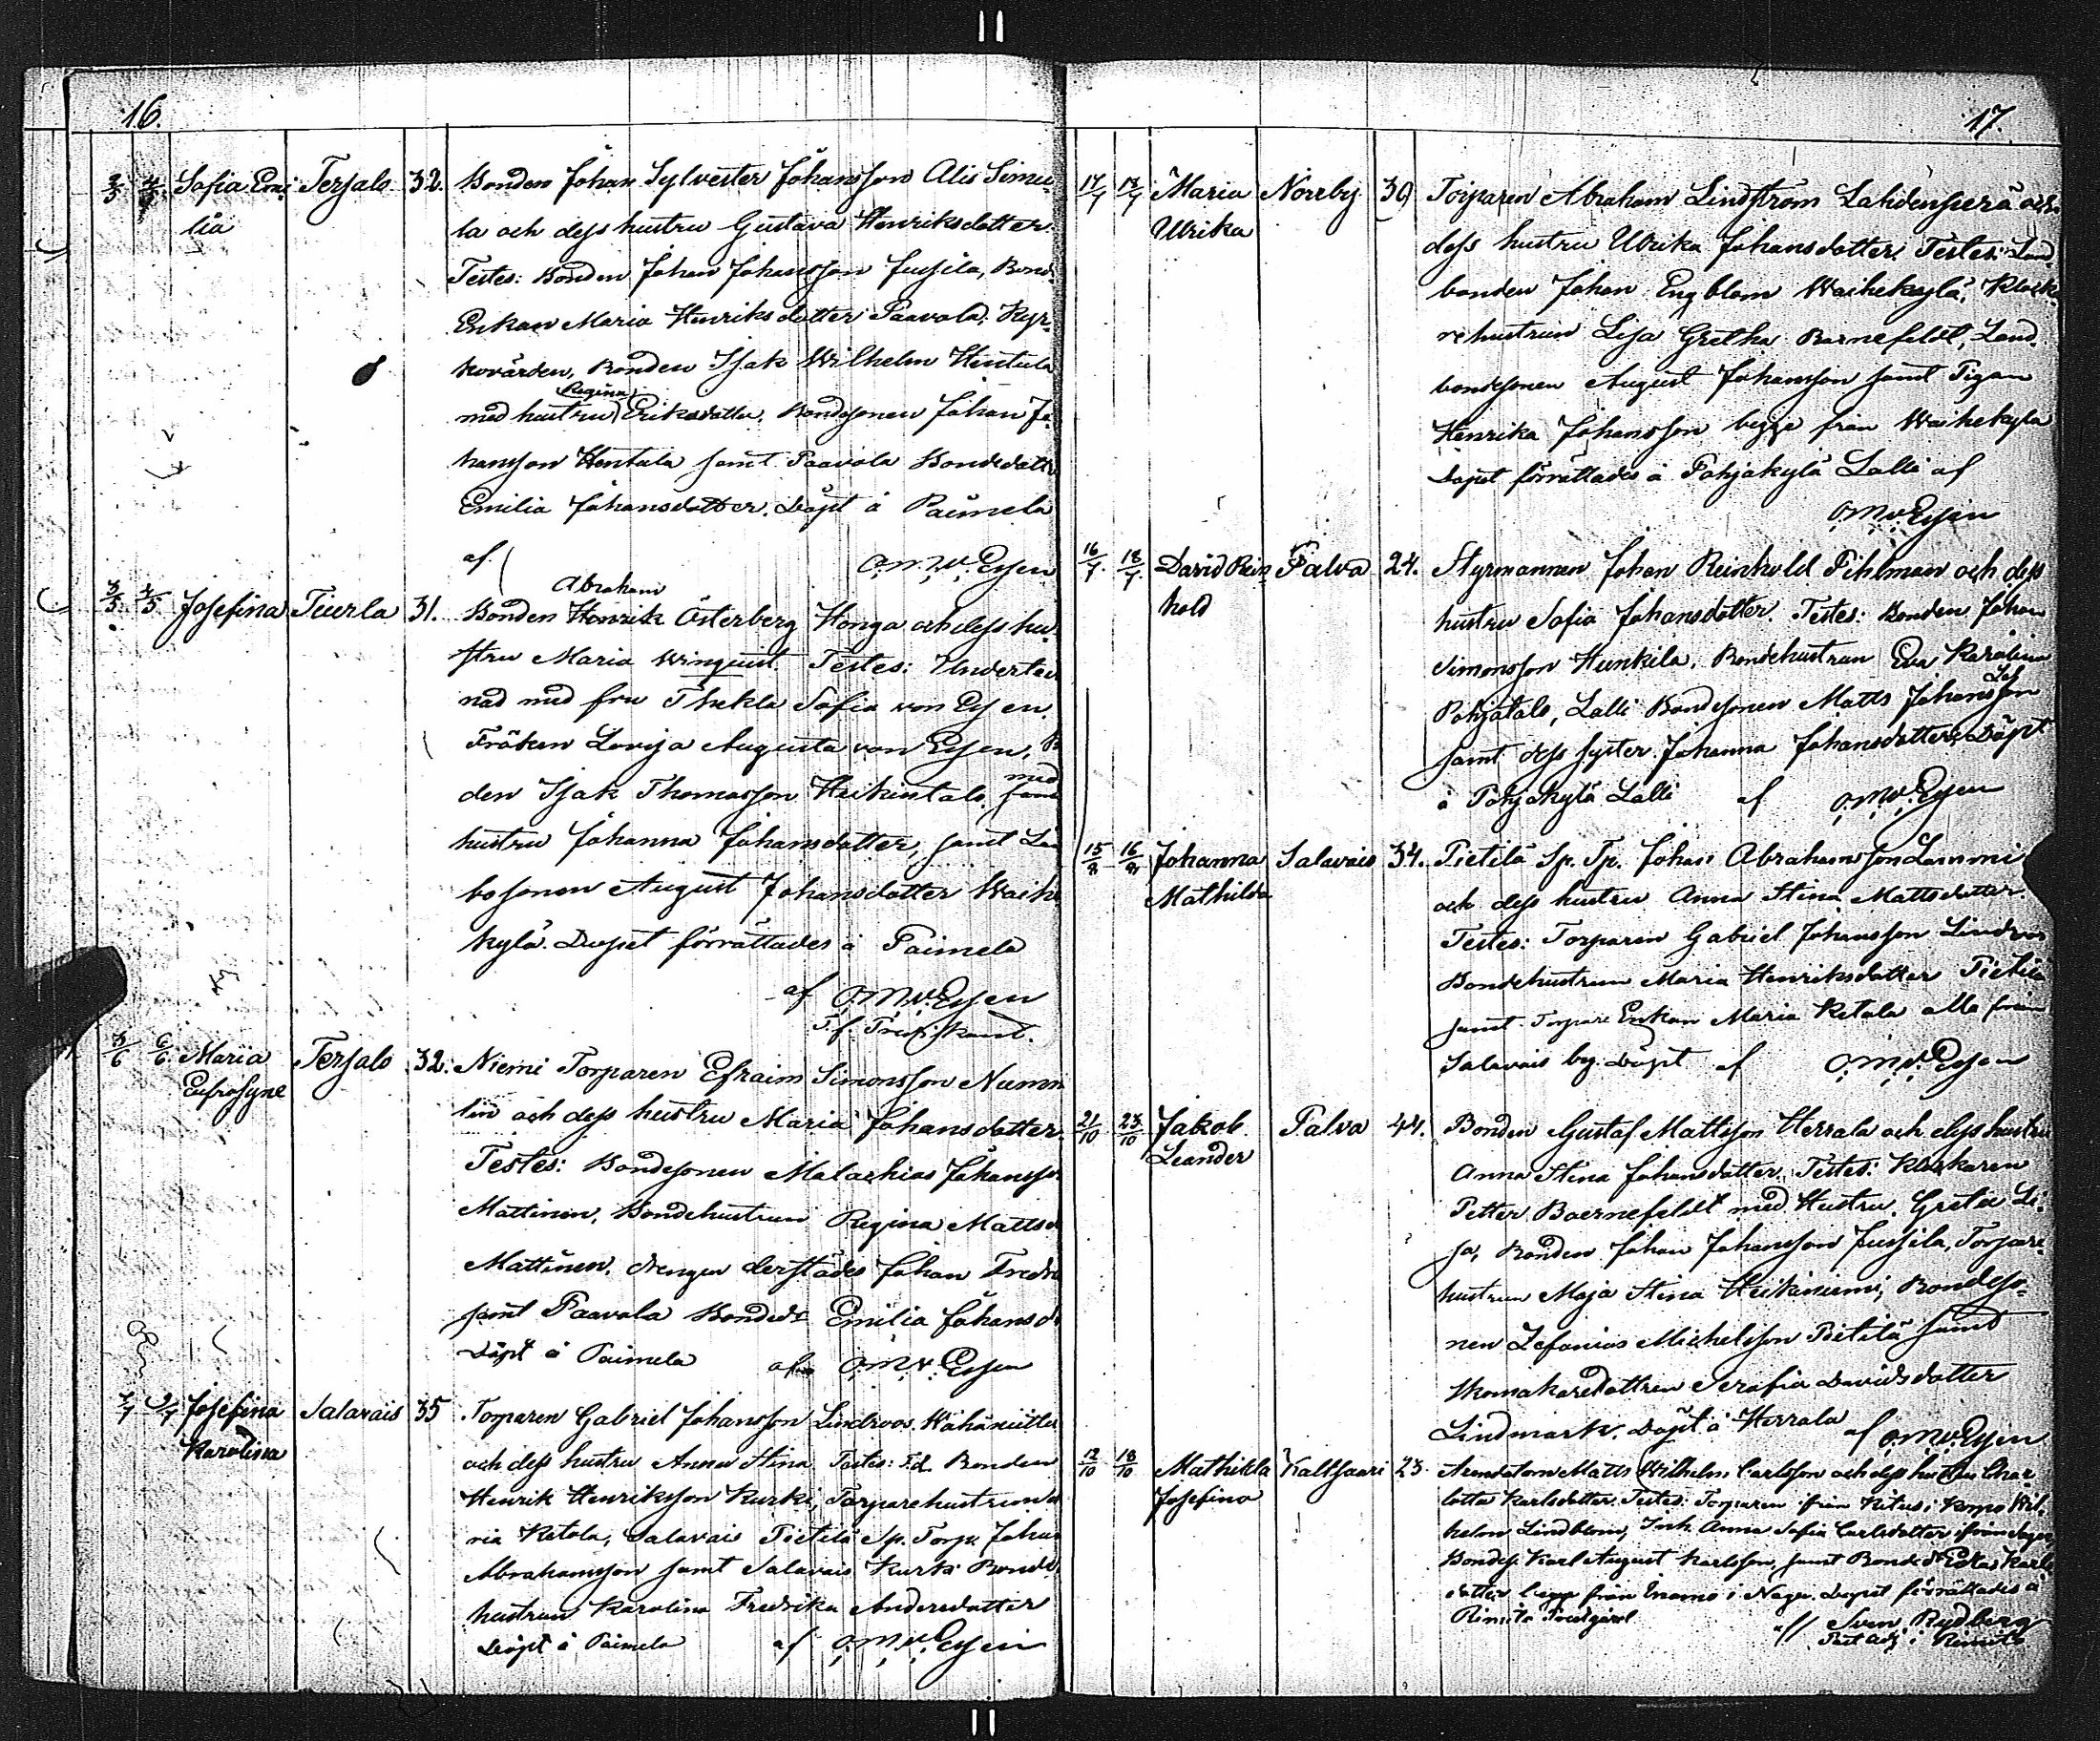 16.
2/5 4/5 Sofia Emi Tersalo 32. Bonden Johan Sylvester Johansson Alis Simu=
lia la och dess hustru Gustava Henriksdotter.
Testes: Bonden Johan Johansson Jussila, Bond
Enkan Maria Henriksdotter Paavola, Kyr=
kovärden, Bonden Isak Wilhelm Hintula
Regina
med hustru Eriksdotter. Bondesonen Johan Jo=
hansson Hentula samt Paavola Bondedottr
Emilia Johansdotter. Döpt å Paimela
af O.M.v.Essen
Abraham
3/5 4/5 Josefina Teierla 31. Bonden Henrik Österberg Honga och dess hu
stru Maria Winquist. Testes: Underteck
nad med fru Thekla Sofia von Essen.
Fröken Lovisa Augusta von Essen, B
den Isak Thomasson Heikintalo,
med
hustru Johanna Johansdotter, samt Lan
bosonen August Johansdotter Waihe
kylä. Dopet förrättades å Paimela
af O.M.v.Essen
T.f. Predikant.
3/6 6/6 Maria Tersalo 32. Niemi Torparen Efraim Simonsson Numm
Eufrosyne lin och dess hustru Maria Johansdotter.
Testes: Bondesonen Malachias Johansson
Mattinen, Bondehustrun Regina Mattsd
Mattinen. Drengen derstädes Johan Fredr
samt Paavola Bonded: Emilia Johansd
Döpt å Paimela af O.M.v.Essen
Josefina Salavais 35 Torparen Gabriel Johansson Lindroos Wähäniitlu
Karolina och dess hustru Anna Stina. Testes: F.d. Bonden
Henrik Henriksson Kurki, Torparehustrun
ria Ketola, Salavais Pietilä Sp. Torp. Johan
Abrahamsson samt Salavais Kurki Bonde
hustrun Karolina Fredrika Andersdotter
Döpt å Paimela af O.M.v.Essen
17.
17/7 17/7 Maria Norrby 39 Torparen Abraham Lindström Lahdenperä och
Ulrika dess hustru Ulrika Johansdotter. Testes: Land
bonden Johan Engblom Waihekylä, Klocka
rehustrun Lisa Gretha Barnefeldt, Land
bondesonen August Johansson samt Pigan
Henrika Johansson begge från Waihekyla
Dopet förrättades å Pohjakylä Lalli af
O.M.v.Essen
16/7. 18/7. David Rein Palva 24. Styrmannen Johan Reinhold Pihlman och dess
hold hustru Sofia Johansdotter. Testes: Bonden Johan
Simonsson Hunkila, Bondehustrun Eva Karolina
Pohjatalo, Lalli Bondesonen Matts Johansson
samt dess syster Johanna Johansdotter. Döpt
å Pohjakylä Lalli af O.M.v.Essen
15/9 16/9 Johanna Salavais 34. Pietilä Sp. Tp. Johan Abrahamsson Lammi
Mathilda och dess hustru Anna Stina Mattsdotter.
Testes: Torparen Gabriel Johansson Lindroos
Bondehustrun Maria Henriksdotter Pietilä
samt Torpare Enkan Maria Ketola alla från
Salavais by. Döpt af O.M.v.Essen
21/10 23/10 Jakob Palva 44. Bonden Gustaf Mattsson Herrala och dess hustru
Leander Anna Stina Johansdotter. Testes: Klockaren
Petter Baernefeldt med Hustru. Greta Li=
sa, Bonden Johan Johansson Jussila, Torpare=
hustrun Maja Stina Heikiniemi, Bondeso=
nen Zefanias Michelsson Pietilä samt
Skomakaredottren Serafia Davidsdotter
Lindmark. Döpt å Herrala af O.M.v.Essen
12/10 18/10 Mathilda Kaltsaari 23. Arendatorn Matts Wilhelm Carlsson och dess hustru Char
Josefina lotta Karlsdotter. Testes: Torparen från Kitus i Korpo Wil=
helm Lindblom, Inh. Anna Sofia Carlsdotter ifrån
Bondes. Karl August Karlsson, samt Bonded: Karls
dotter från i Nagu. Dopet förrättades å
Rimito Prestgård af Sven Rydberg
Past. adj. i Rimito